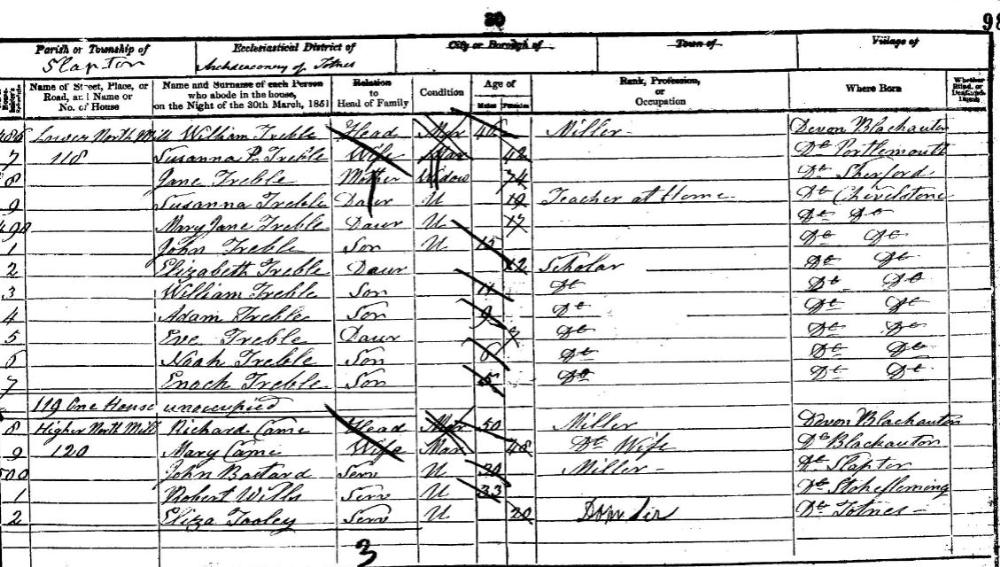 30 98
Parish or Township of Ecclesiastical District of City or Borough of Town of Village of
Slapton Archdeaconry of Totnes
Name of Street, Place, or Road, and Name or No. of House Name and Surname of each Person who abode in the house, on the Night of the 30th March, 1851 Relation to Head of Family Condition Age of Males Females Rank, Profession, or Occupation Where Born Whether Blind, or Deaf-and-Dumb
486 Lower North Mill William Treble Head Mar 46 Miller Devon Blackauton
7 118 Susanna P. Treble Wife Mar 42 Do Portlemouth
8 Jane Treble Mother Widow 74 Do Sherford
9 Susanna Treble Daur U 19 Teacher at Home Do Chivelstone
490 Mary Jane Treble Daur U 17 Do Do
1 John Treble Son U 15 Do Do
2 Elizabeth Treble Daur 12 Scholar Do Do
3 William Treble Son 11 Do Do Do
4 Adam Treble Son 9 Do Do Do
5 Eve Treble Daur 7 Do Do Do
6 Noah Treble Son 6 Do Do Do
7 Enoch Treble Son 5 Do Do Do
119 One House unoccupied
8 Higher North Mill Richard Came Head Mar 50 Miller Devon Blackauton
9 120 Mary Came Wife Mar 48 Do Wife Do Blackauton
500 John Bastard Serv U 30 Miller Do Slapton
1 Robert Wills Serv U 33 Do Stokefleming
2 Eliza Tooley Serv U 20 Do Totnes
3